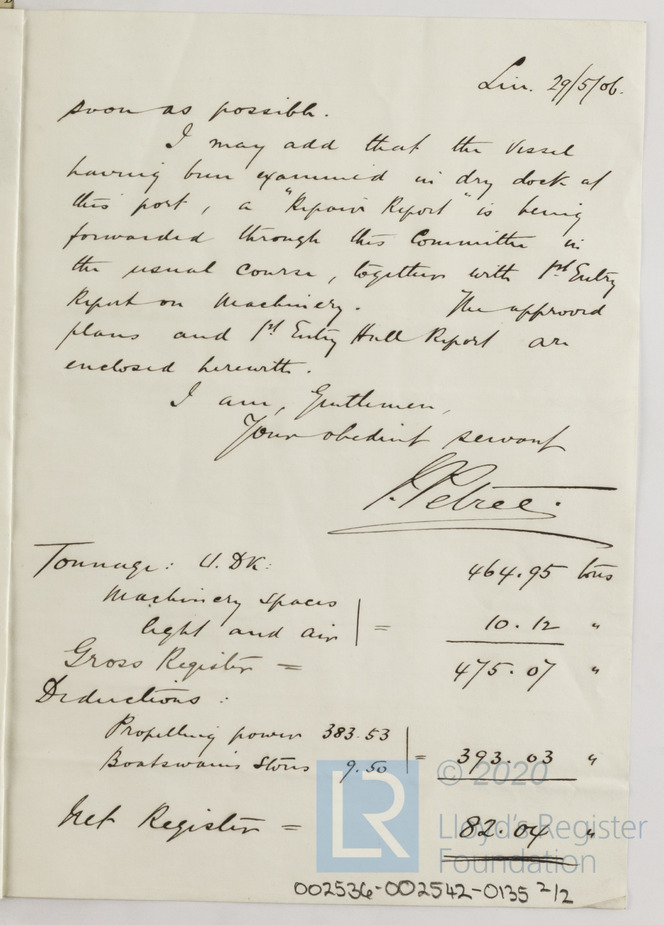 Liv. 29/5/06.
soon as possible.
I may add that the Vessel
having been examined in dry dock at
this port, a "Repairs Report" is being
forwarded through this Committee in
the usual course, together with 1st Entry
Report on Machinery. The approved
plans and 1st Entry Hull Report are
enclosed herewith.
I am, Gentlemen,
Your obedient servant
J. Petree.
Tonnage: U. DK: 464.95 tons
Machinery spaces
light and air = 10.12 "
Gross Register = 475.07 "
Deductions:
Propelling power 383.53
Boatswains Stores 9.50 = 393.03 "
Net Register = 82.04 "
LR © 2020
Lloyd's Register
Foundation
002536-002542-0135 2/2